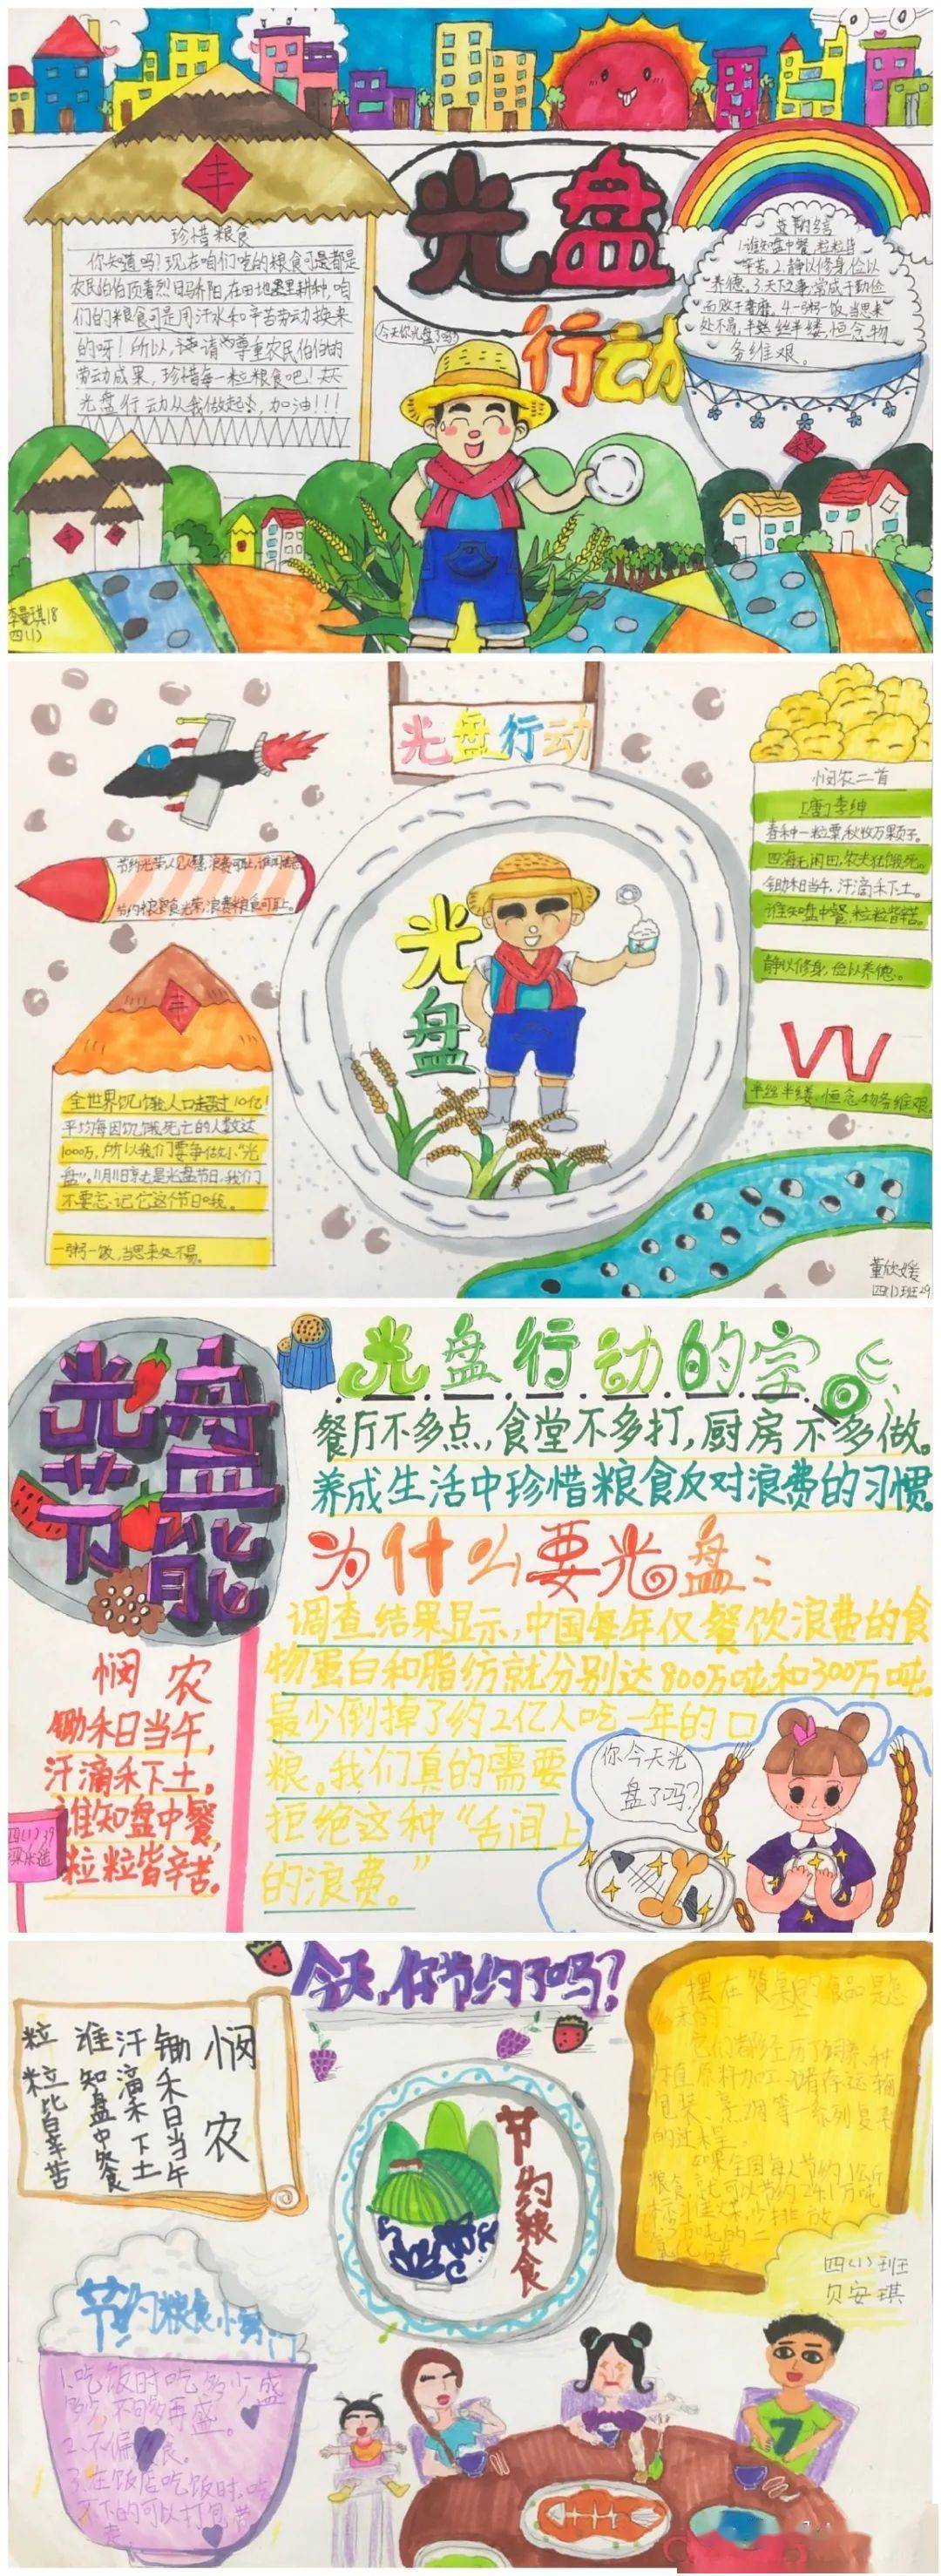 光盘
行动
丰
珍惜粮食
你知道吗?现在咱们吃的粮食可是都是
农民伯伯顶着烈日骄阳,在田地里耕种,咱
们的粮食可是用汗水和辛苦劳动换来
的呀!所以,请尊重农民伯伯的
劳动成果,珍惜每一粒粮食吧!
光盘行动从我做起,加油!!!
今天你光盘了吗?
1.谁知盘中餐,粒粒皆
辛苦。2.静以修身,俭以
养德。3.天下之事,常成于勤俭
而败于奢靡。4.一粥一饭,当思来
处不易,半丝半缕,恒念物
力维艰。
粮
李曼琪18
四(1)
光盘行动
节约粮食光荣,浪费粮食可耻。
丰
全世界饥饿人口超过10亿!
平均每年因饥饿死亡的人数达
1000万,所以我们要争做小“光
盘”。
不要忘记它这个节日哦。
一粥一饭,当思来处不易。
光
盘
悯农二首
[唐]李绅
春种一粒粟,秋收万颗子。
四海无闲田,农夫犹饿死。
锄禾日当午,汗滴禾下土。
谁知盘中餐,粒粒皆辛苦。
静以修身,俭以养德。
半丝半缕,恒念物力维艰
董欣媛
四(1)班29
光盘
节能
光盘行动的宗
餐厅不多点,食堂不多打,厨房不多做。
养成生活中珍惜粮食反对浪费的习惯
为什么要光盘:
调查结果显示,中国每年仅餐饮浪费的食
物蛋白和脂肪就分别达800万吨和300万吨
最少倒掉了约2亿人吃一年的口
粮。我们真的需要
拒绝这种“舌间上
的浪费。”
悯农
锄禾日当午,
汗滴禾下土。
谁知盘中餐,
粒粒皆辛苦。
四(1)39
你今天光
盘了吗?
今天,你节约了吗?
悯农
锄禾日当午
汗滴禾下土
谁知盘中餐
粒粒皆辛苦
节约粮食
摆在餐桌的食品是怎
它们都经历了饲养、种
植、原料加工、储存运输
包装、烹调等一系列复杂
的过程。
如果全国每人节约1公斤
四(1)班
贝安琪
节约粮食小窍门
1.吃饭时吃多少盛
多少,不够再盛。
2.不偏食。
3.在饭店吃饭时,吃
不下的可以打包带
走。
7